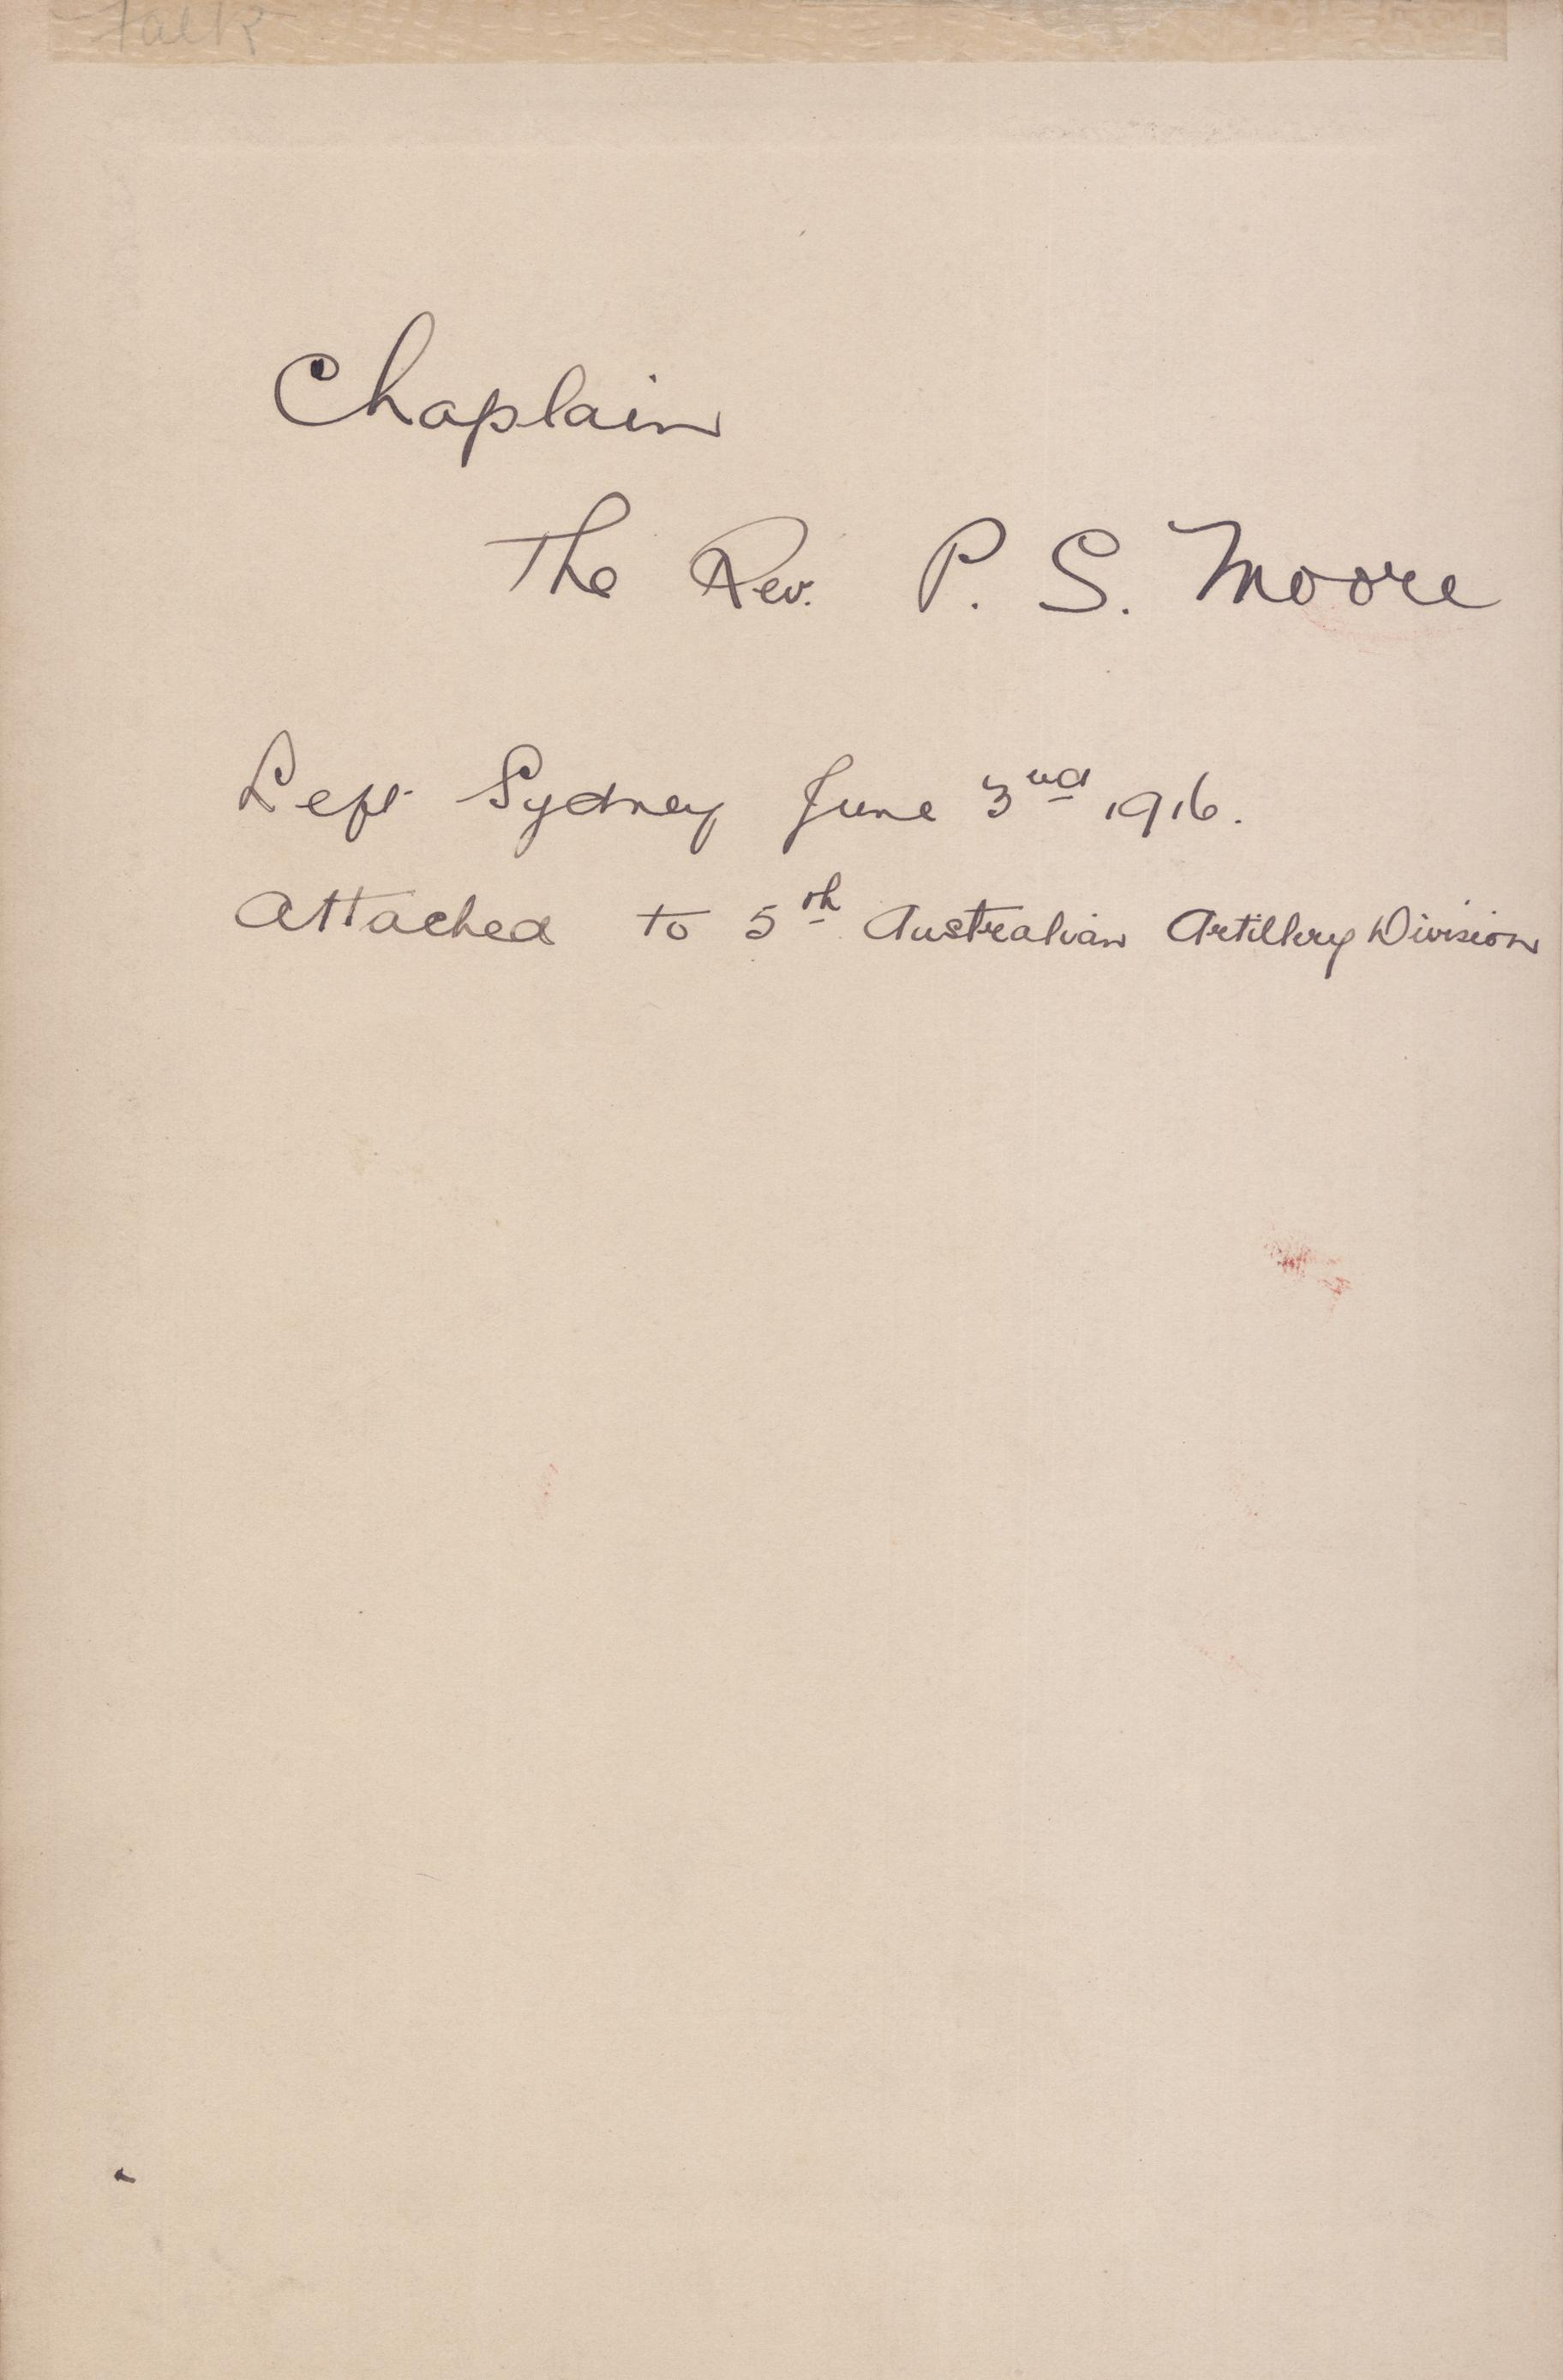 Talk
Chaplain
The Rev. P. S. Moore
Left Sydney June 3nd 1916.
Attached to 5th Australian Artillery Division